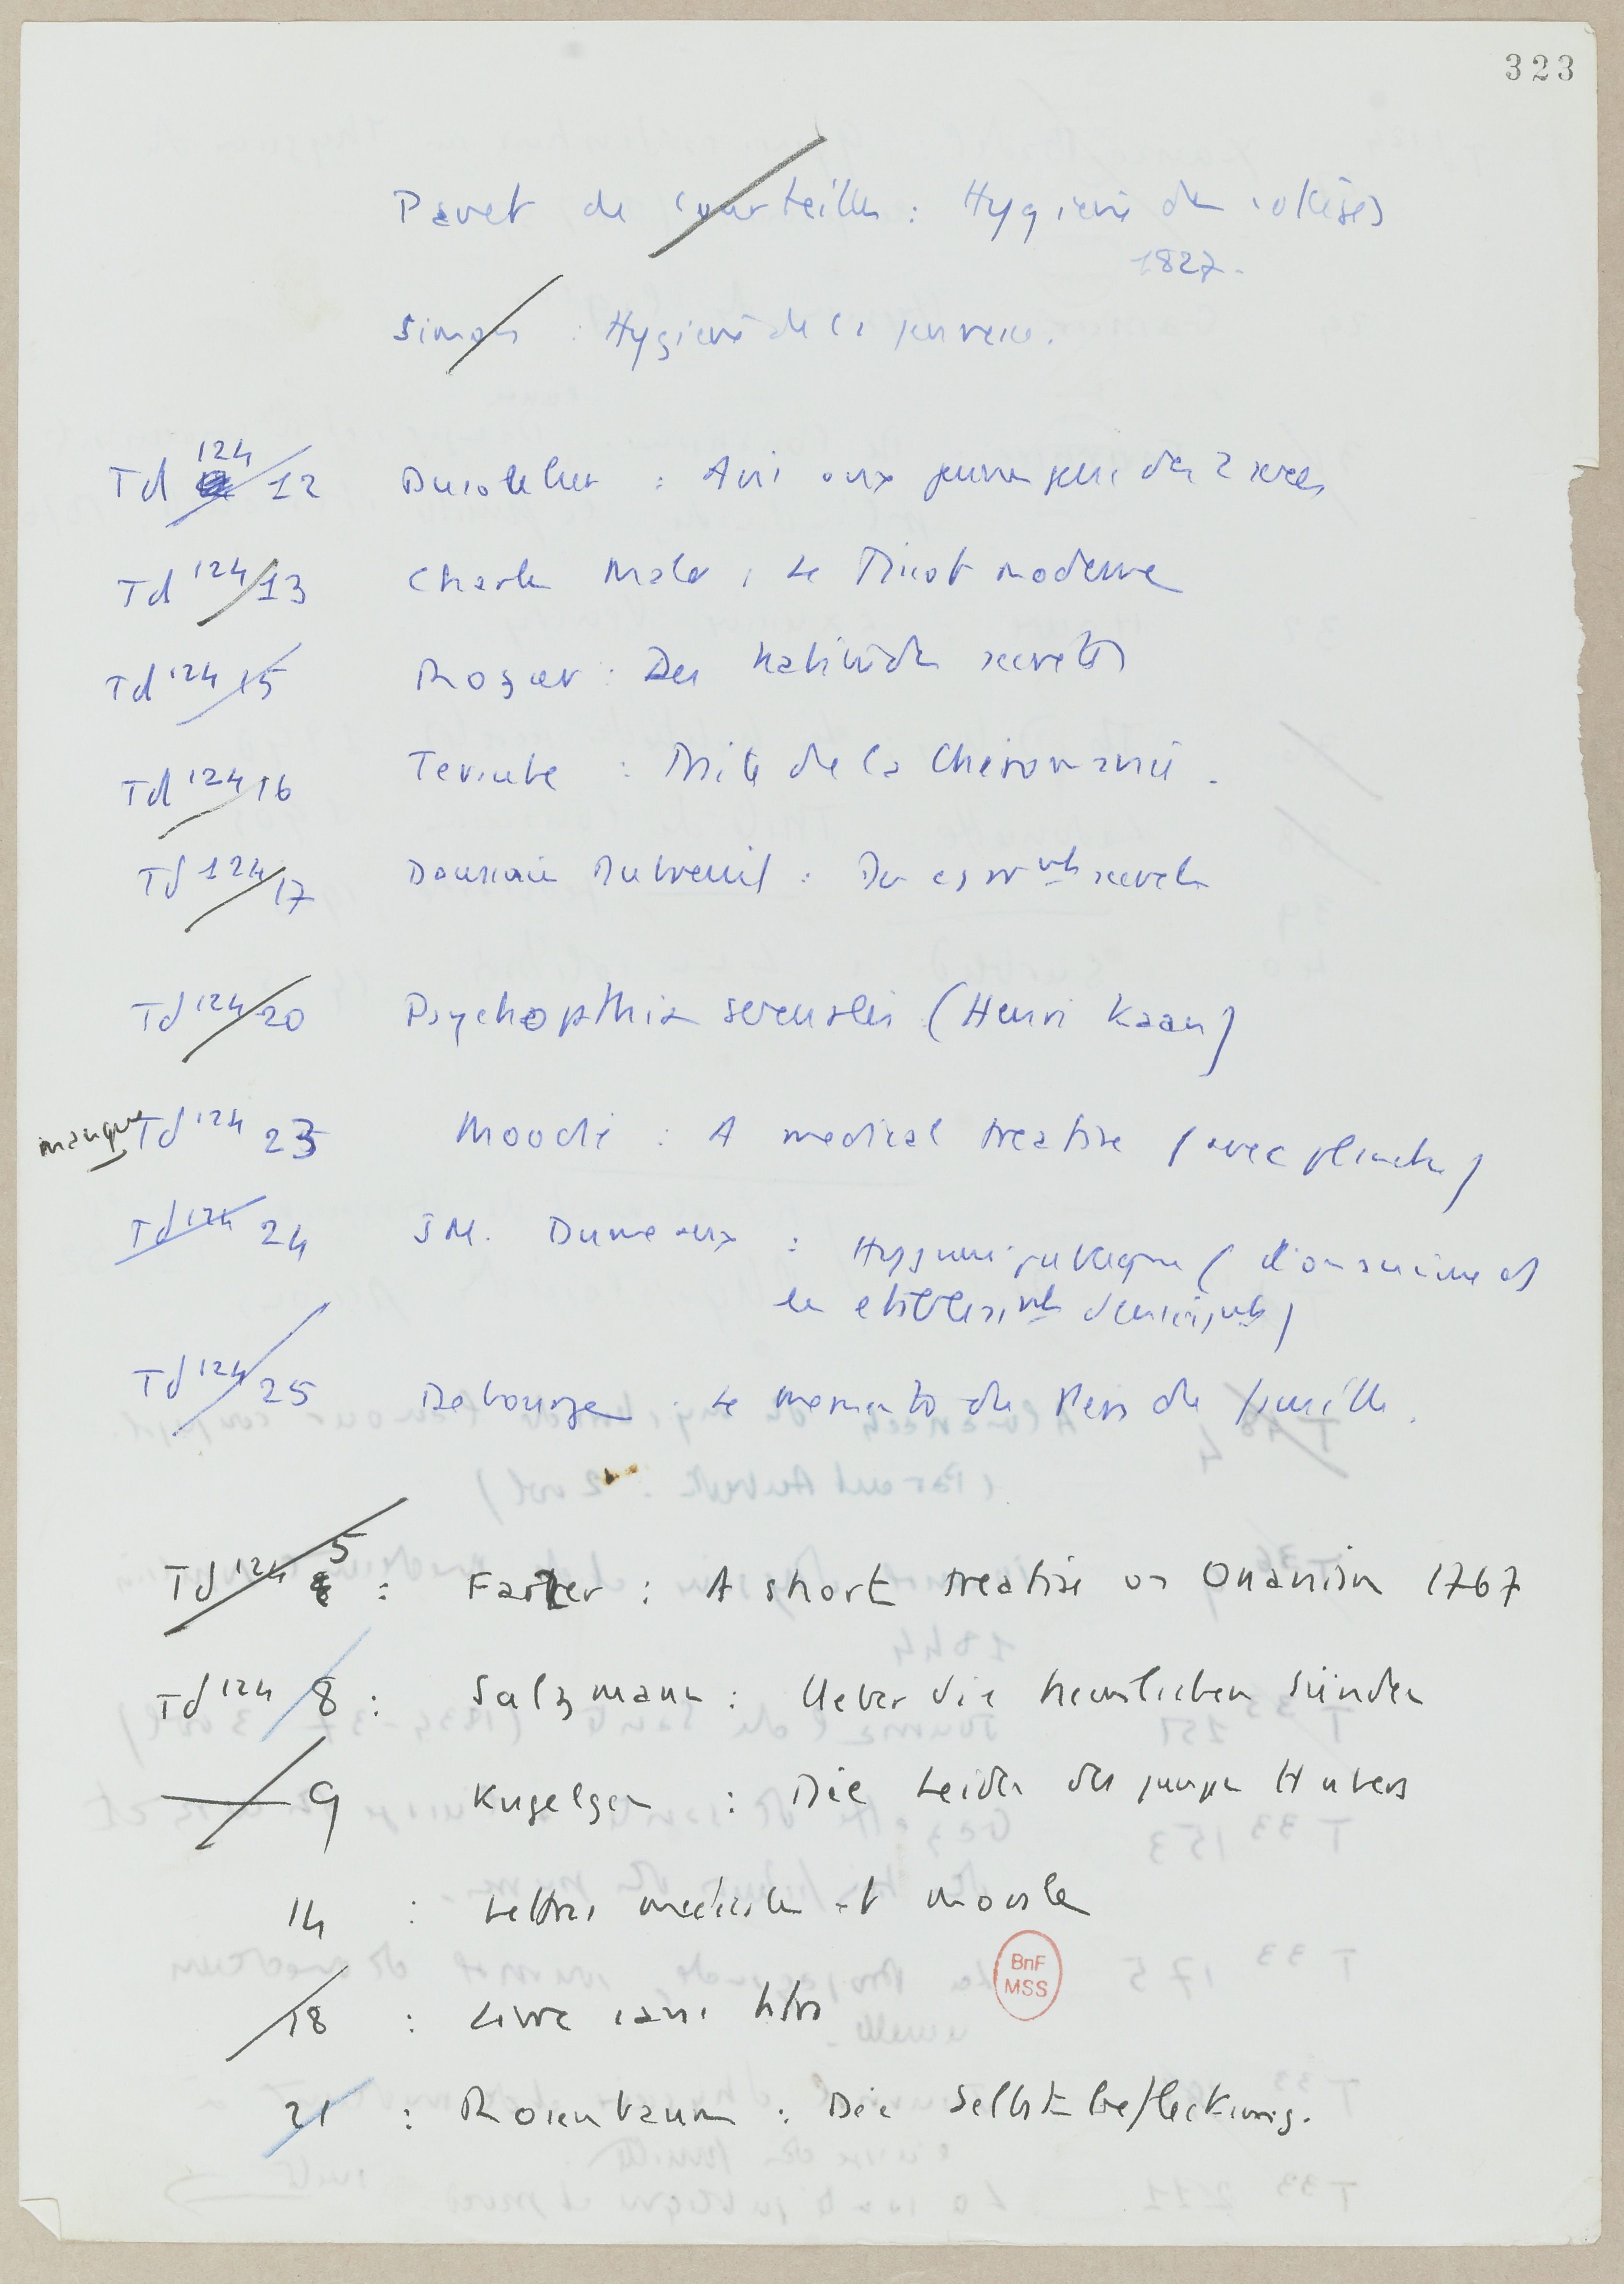 323
Pavet de Courteilles : Hygiène des collèges
1827.
Simon : Hygiène de la jeunesse.
Td 124 12 : Avis aux jeunes gens des 2 sexes
Td 124 13 Charles Malo : Le Tissot moderne
Td 124 15 Rozier : Des habitudes secrètes
Td 124 16 : Traité de la Chiromanie.
Td 124 17 Doussin Dubreuil : Des égarmts secrets
Td 124 20 Psychopathia sexualis (Henri Kaan)
manque Td 124 23 Moodie : A medical treatise (avec planches)
Td 124 24 JM. Dumeaux : Hygiène publique (
les établissmts d'enseignmts)
Td 124 25 Debourge : Le memento du Père de famille.
Td 124 5 : Farrer : A short treatise on Onanism 1767
Td 124 8 : Salzmann : Ueber die heimlichen Sünden
9 Kugelgen : Die Leiden des jungen Hubers
14 : Lettres médicales et morales
18 : Livre sans titre
BnF
MSS
21 : Rosenbaum : Die Selbstbefleckung.